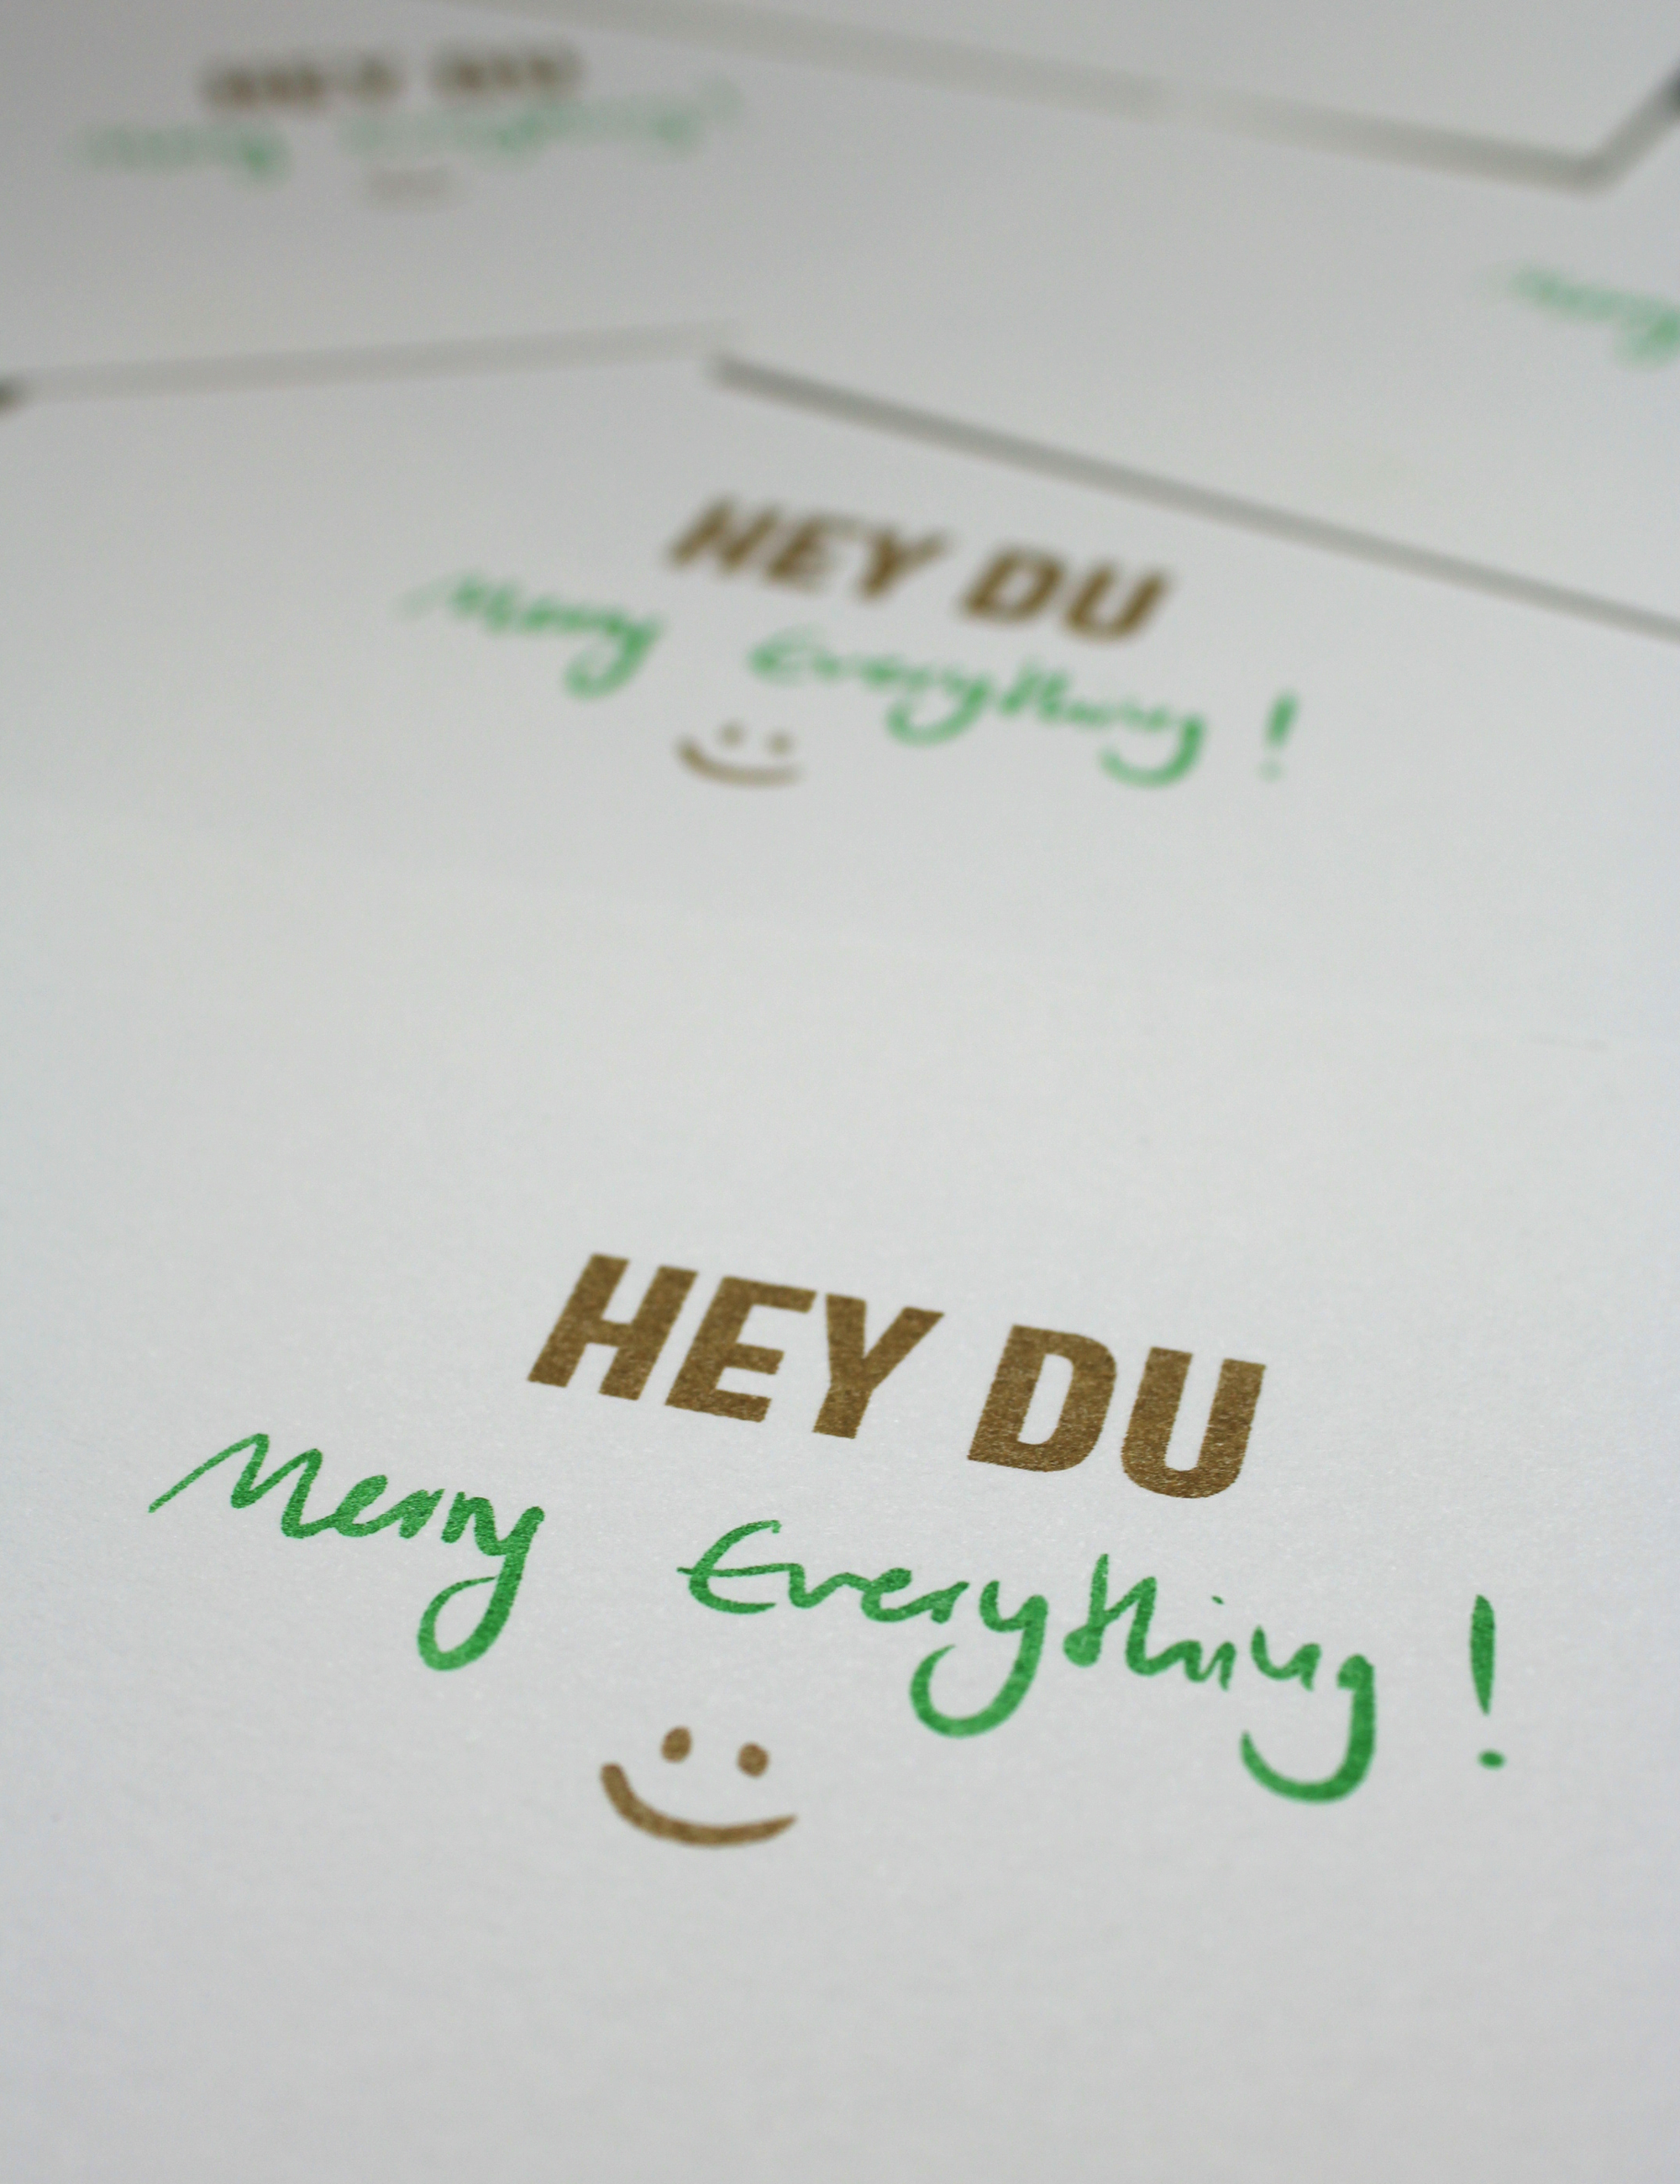 HEY DU
Merry Everything !
HEY DU
Merry Everything !